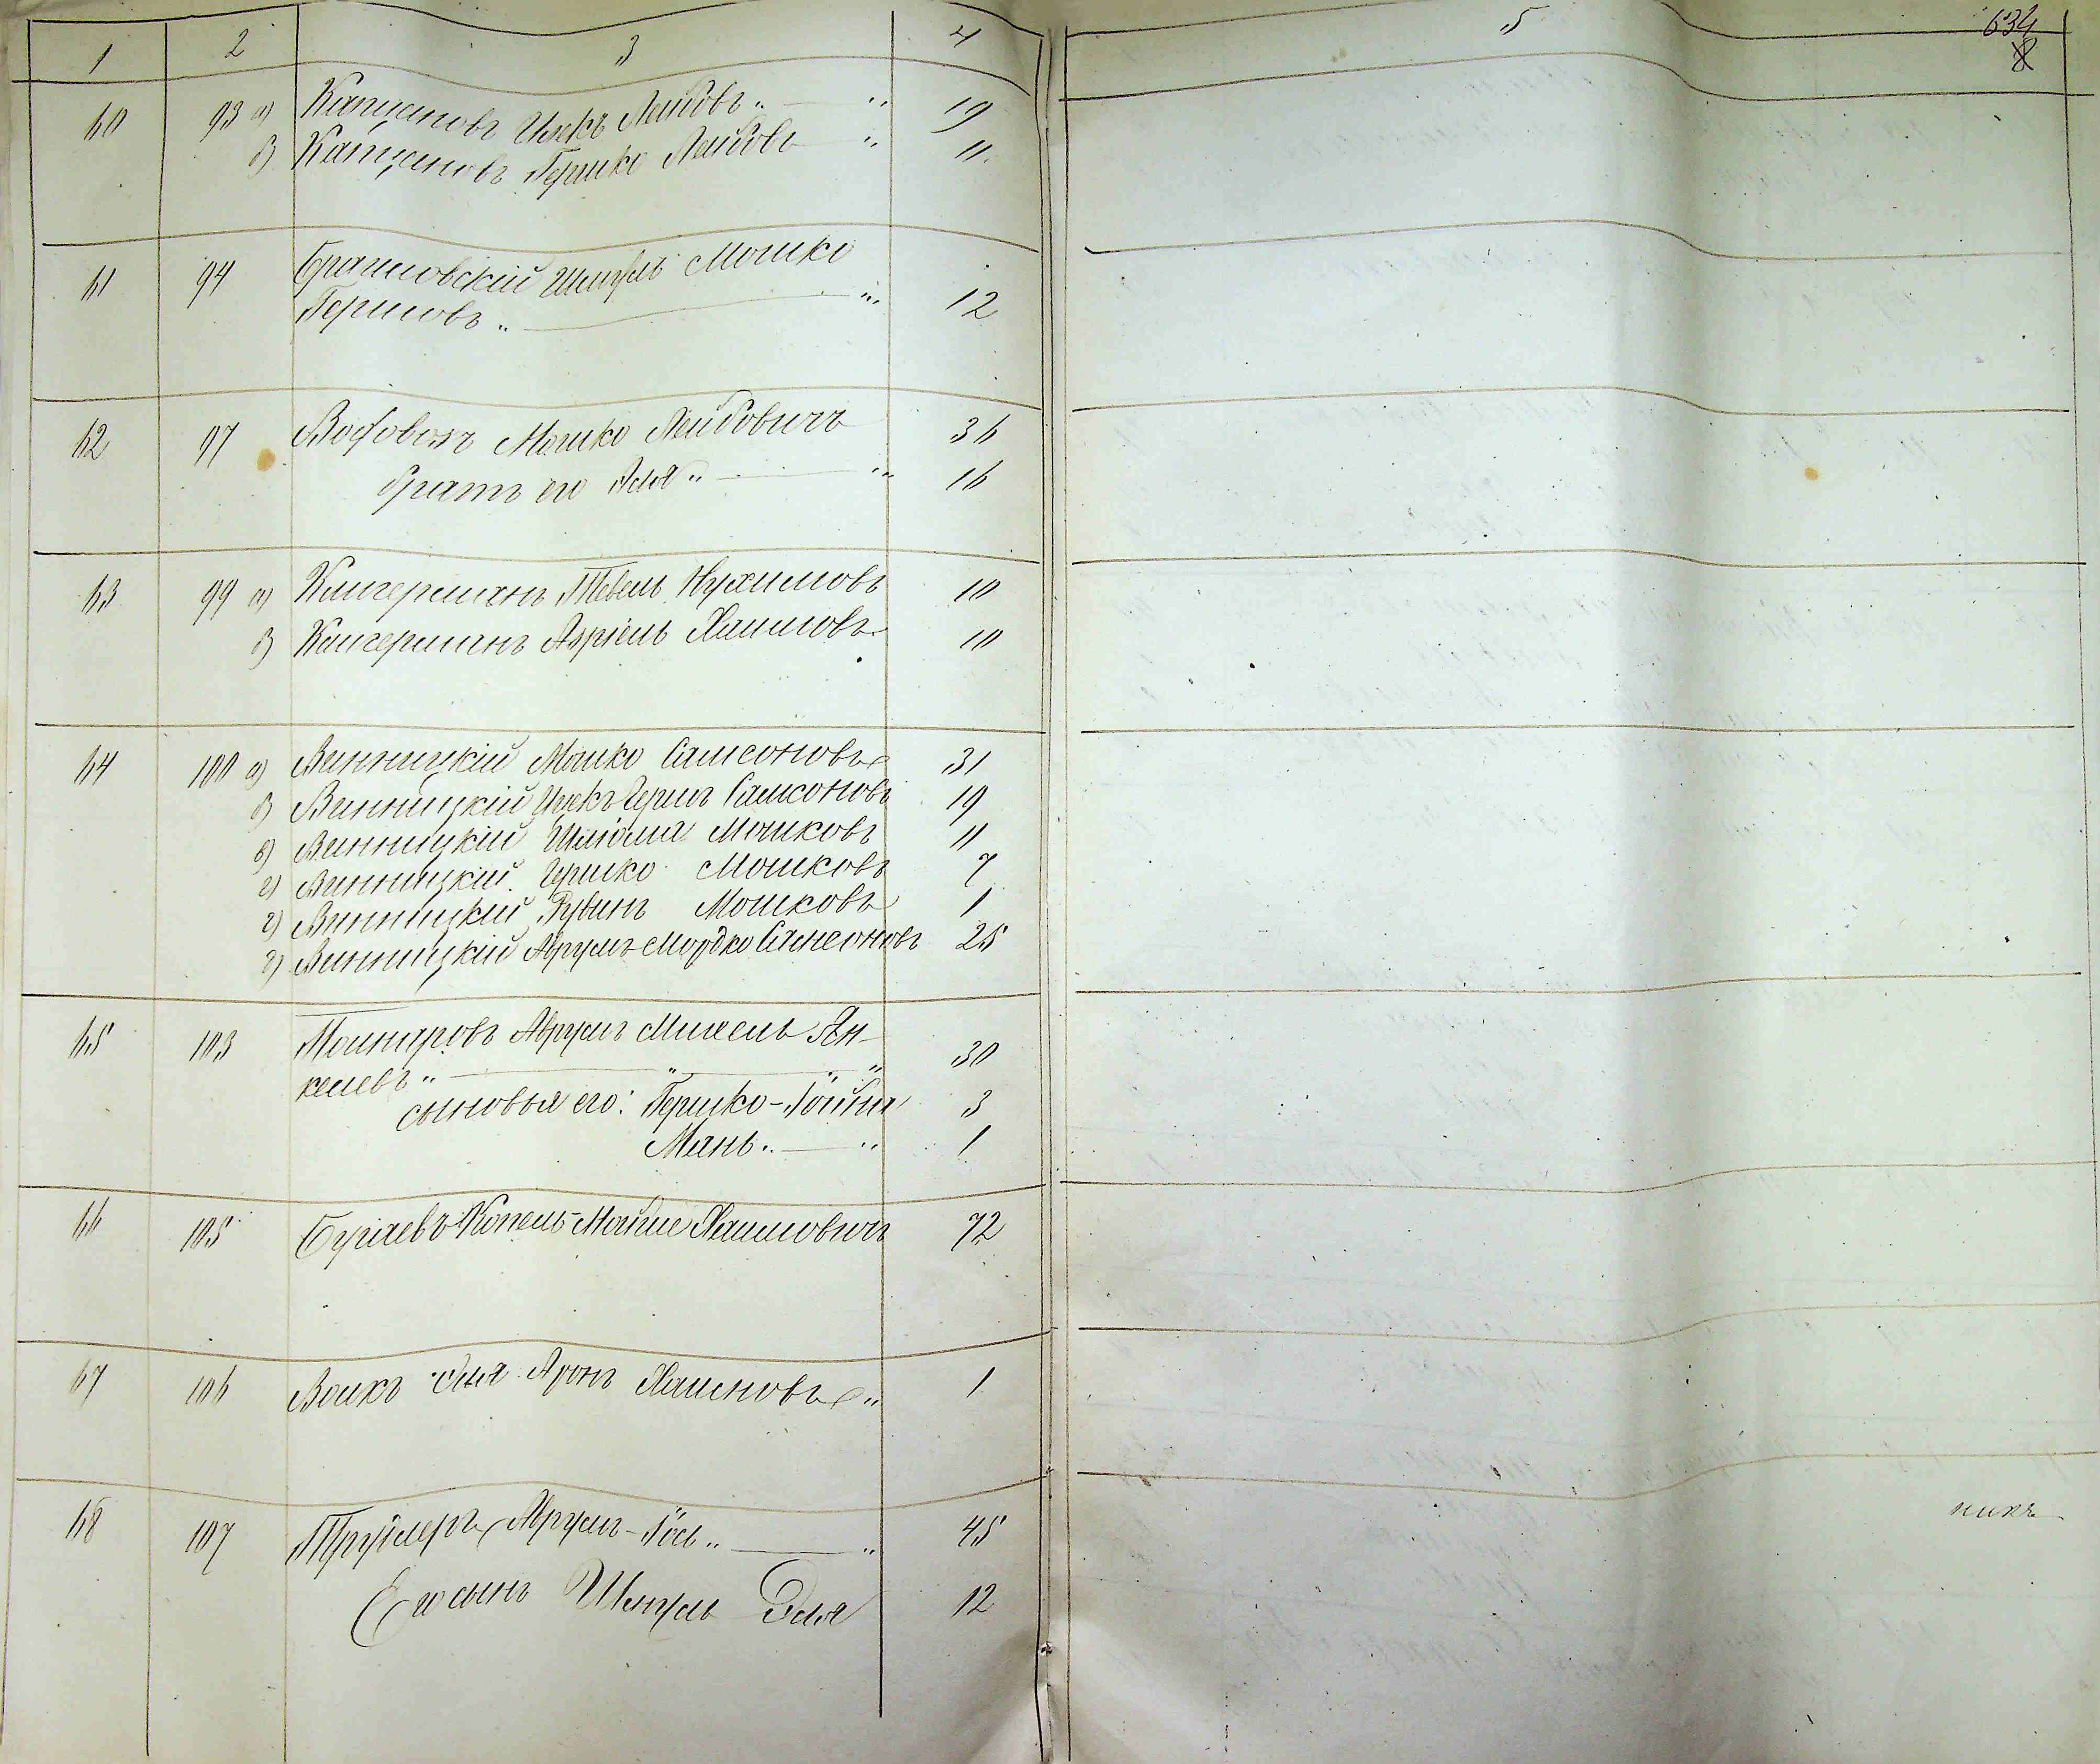 1 2 3 4 5 634
8
60 93 а) Капцановъ Ицекъ Лейбовъ „ — „ 19
б) Капцановъ Гершко Лейбовъ — „ 11
61 94 Браиловскій Шмуль Мошко
Гершовъ „ — „ 12
62 97 Водовозъ Мошко Лейбовичъ 36
братъ его Эля „ — „ 16
63 99 а) Клигерманъ Тевель Нухимовъ 10
б) Клигерманъ Азріель Хаимовъ 10
64 100 а) Винницкій Мошко Самсоновъ 31
б) Винницкій Ицекъ Гершъ Самсоновъ 19
в) Винницкій Шліома Мошковъ 11
г) Винницкій Гершко Мошковъ 7
г) Винницкій Рувинъ Мошковъ 1
д) Винницкій Аврумъ-Мордко Самсоновъ 25
65 103 Аврумъ Михель Ян-
келевъ „ — „ — „ 30
сыновья его: Гершко-Іойна 3
Мань „ — „ 1
66 105 Бугаевъ Копель-Мойше Хаимовичъ 72
67 106 Волкъ Эля Аронъ Хаимовъ „ 1
68 107 Аврумъ-Іось „ — „ 45
Его сынъ Шмуль Эля 12
никъ